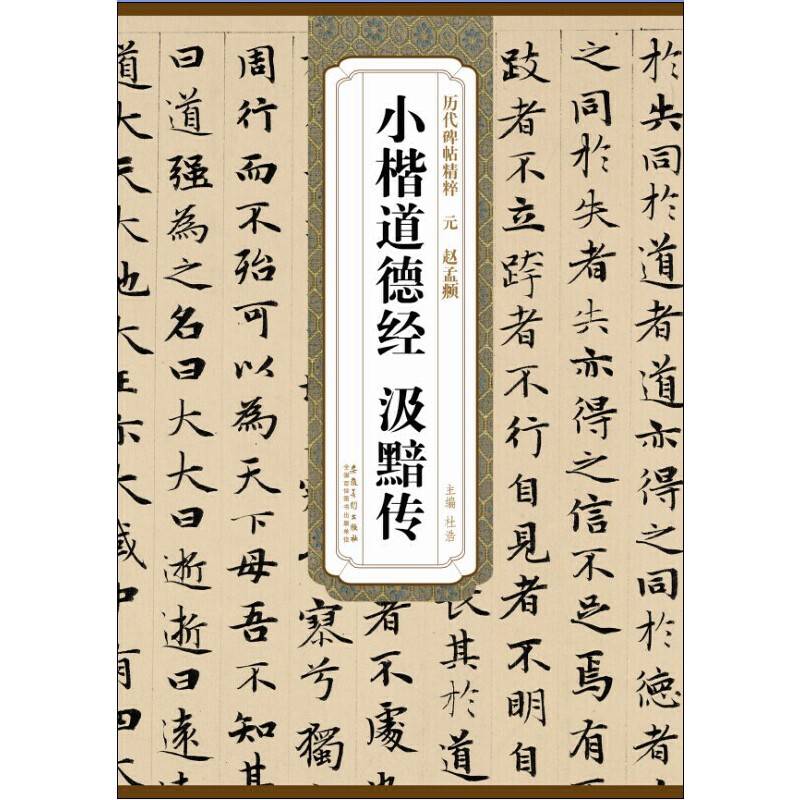 历代碑帖精粹 元 赵孟𫖯
小楷道德经 汲黯传
主编 杜浩
安徽美术出版社
全国百佳图书出版单位
於失同於道者道亦得之同於德者
之同於失者失亦得之信不足焉有
跂者不立跨者不行自見者不明自
長其於道
者不處
寥兮獨
周行而不殆可以為天下母吾不知其
曰道强為之名曰大大曰逝逝曰遠
道大天大地大王亦大域中有四大